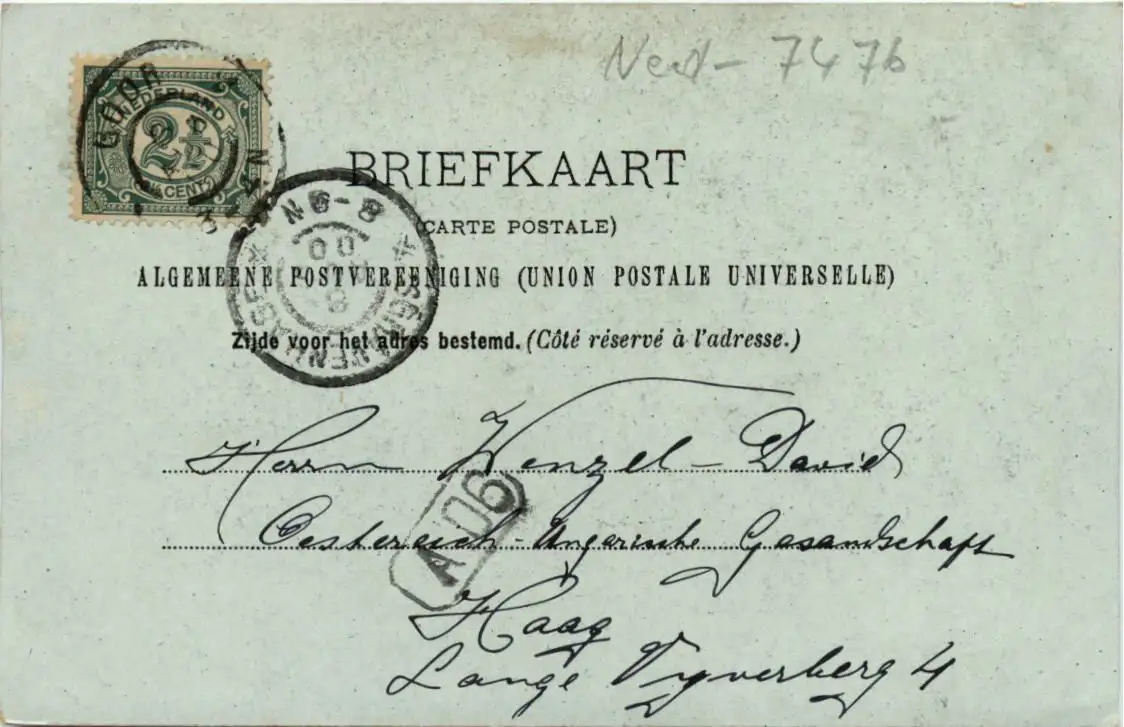 Ned - 7476
GOOR
NEDERLAND
2½
CENT
BRIEFKAART
(CARTE POSTALE)
ALGEMEENE POSTVEREENIGING (UNION POSTALE UNIVERSELLE)
Zijde voor het adres bestemd. (Côté réservé à l'adresse.)
'SGRAVENHAGE
8-9N
00
8
Herrn Wenzel-David
Oestereich-Ungarische Gesandschaft
A06
Haag
Lange Vyverberg 4